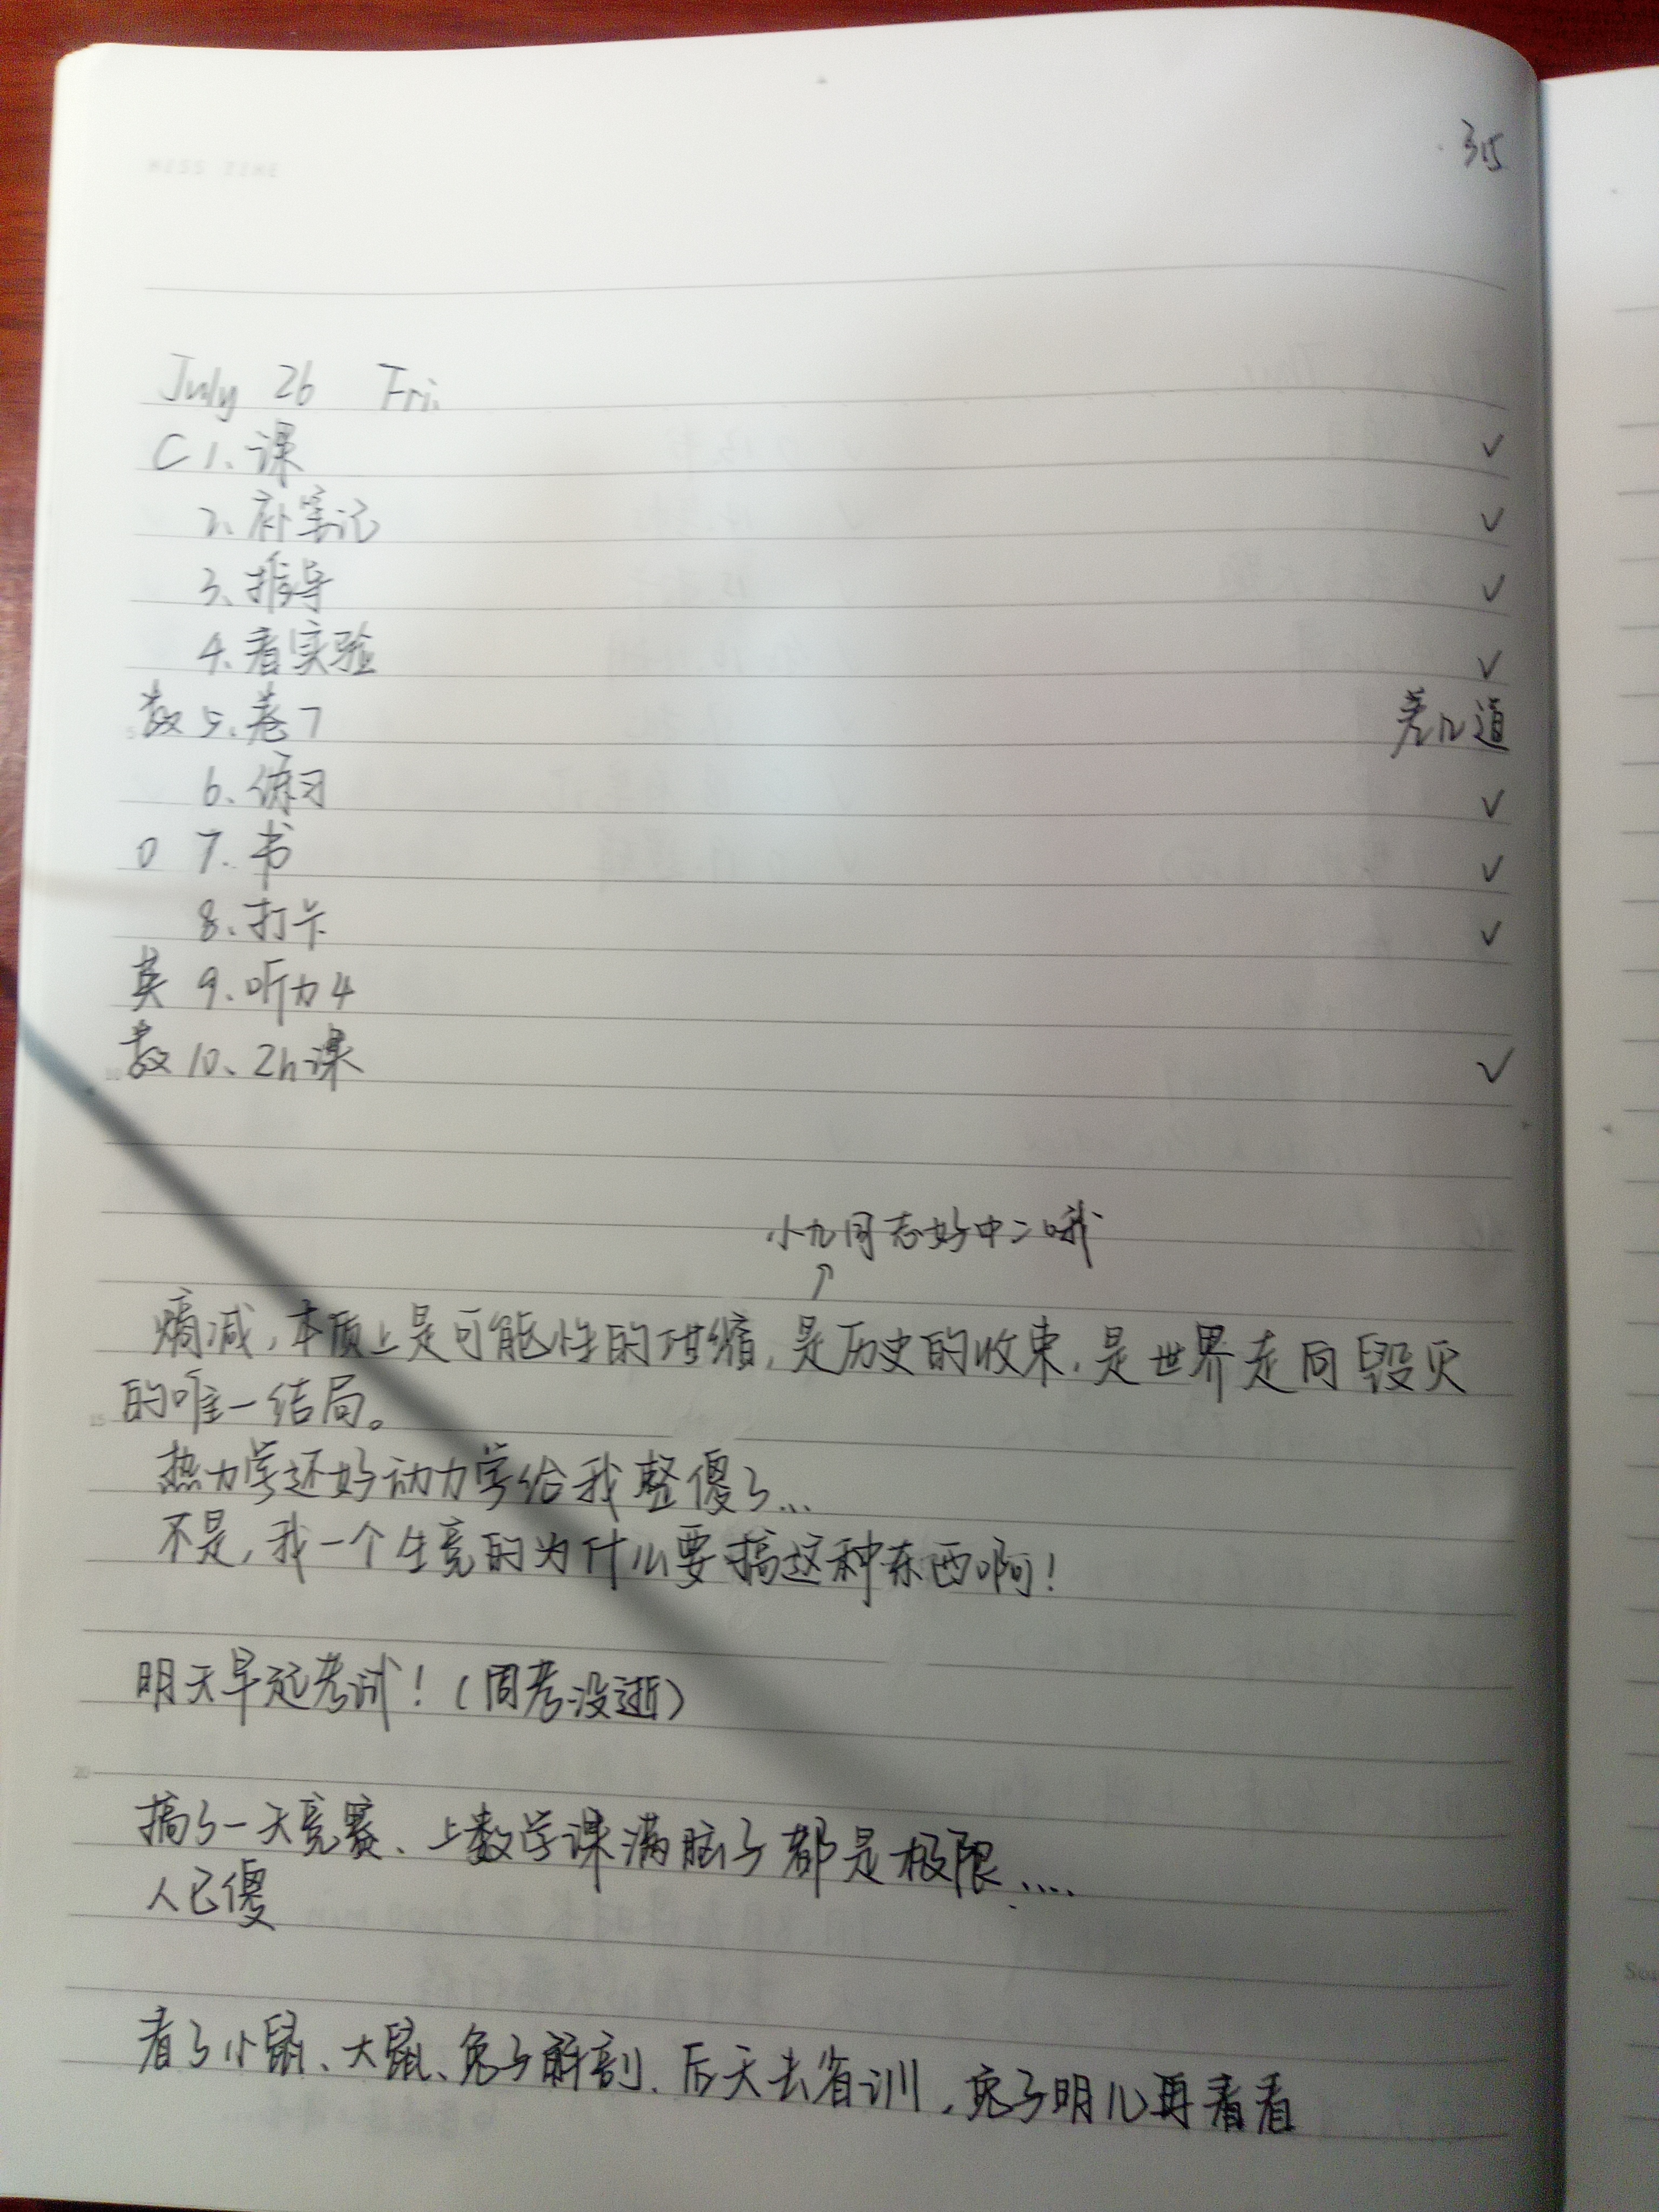 MISS TIME
315
July 26 Fri.
C 1. 课 ✓
2. 补笔记 ✓
3. 推导 ✓
4. 看实验 ✓
数 5. 卷7 差几道
6. 练习 ✓
0 7. 书 ✓
8. 打卡 ✓
英 9. 听力4
数 10. 2h课 ✓
小九同志好中二哦
↑
熵减，本质上是可能性的坍缩，是历史的收束，是世界走向毁灭
的唯一结局。
热力学还好动力学给我整傻了...
不是，我一个生竞的为什么要搞这种东西啊！
明天早起考试！（周考没逝）
搞了一天竞赛、上数学课满脑子都是极限....
人已傻
看了小鼠、大鼠、兔子解剖、后天去省训，兔子明儿再看看